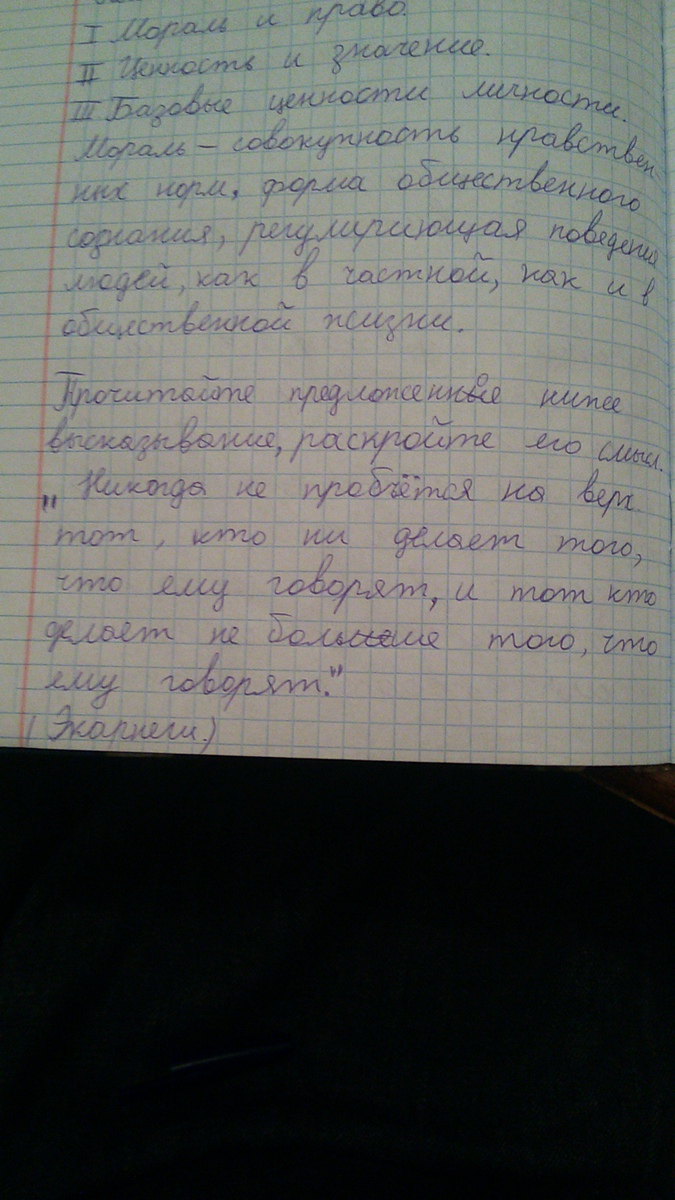 I Мораль и право.
II Ценность и значение.
III Базовые ценности личности.
Мораль – совокупность нравствен-
ных норм, форма общественного
сознания, регулирующая поведение
людей, как в частной, как и в
общественной жизни.
Прочитайте предложенные ниже
высказывание, раскройте его смысл.
"Никогда не пробьётся на верх
тот, кто ни делает того,
что ему говорят, и тот кто
делает не больше того, что
ему говорят."
(Экарнеги.)